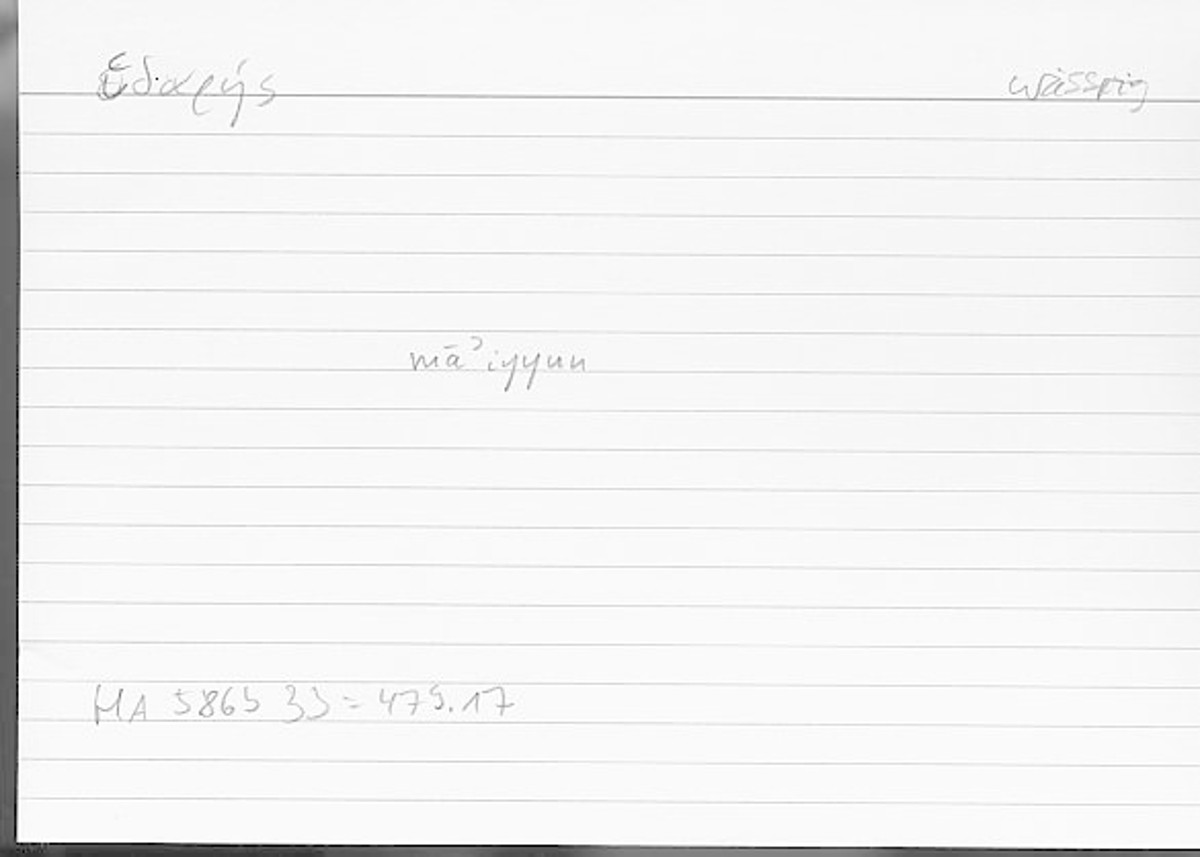 ὑδαρής wässrig
māʾiyyun
HA 586b 33 = 475.17